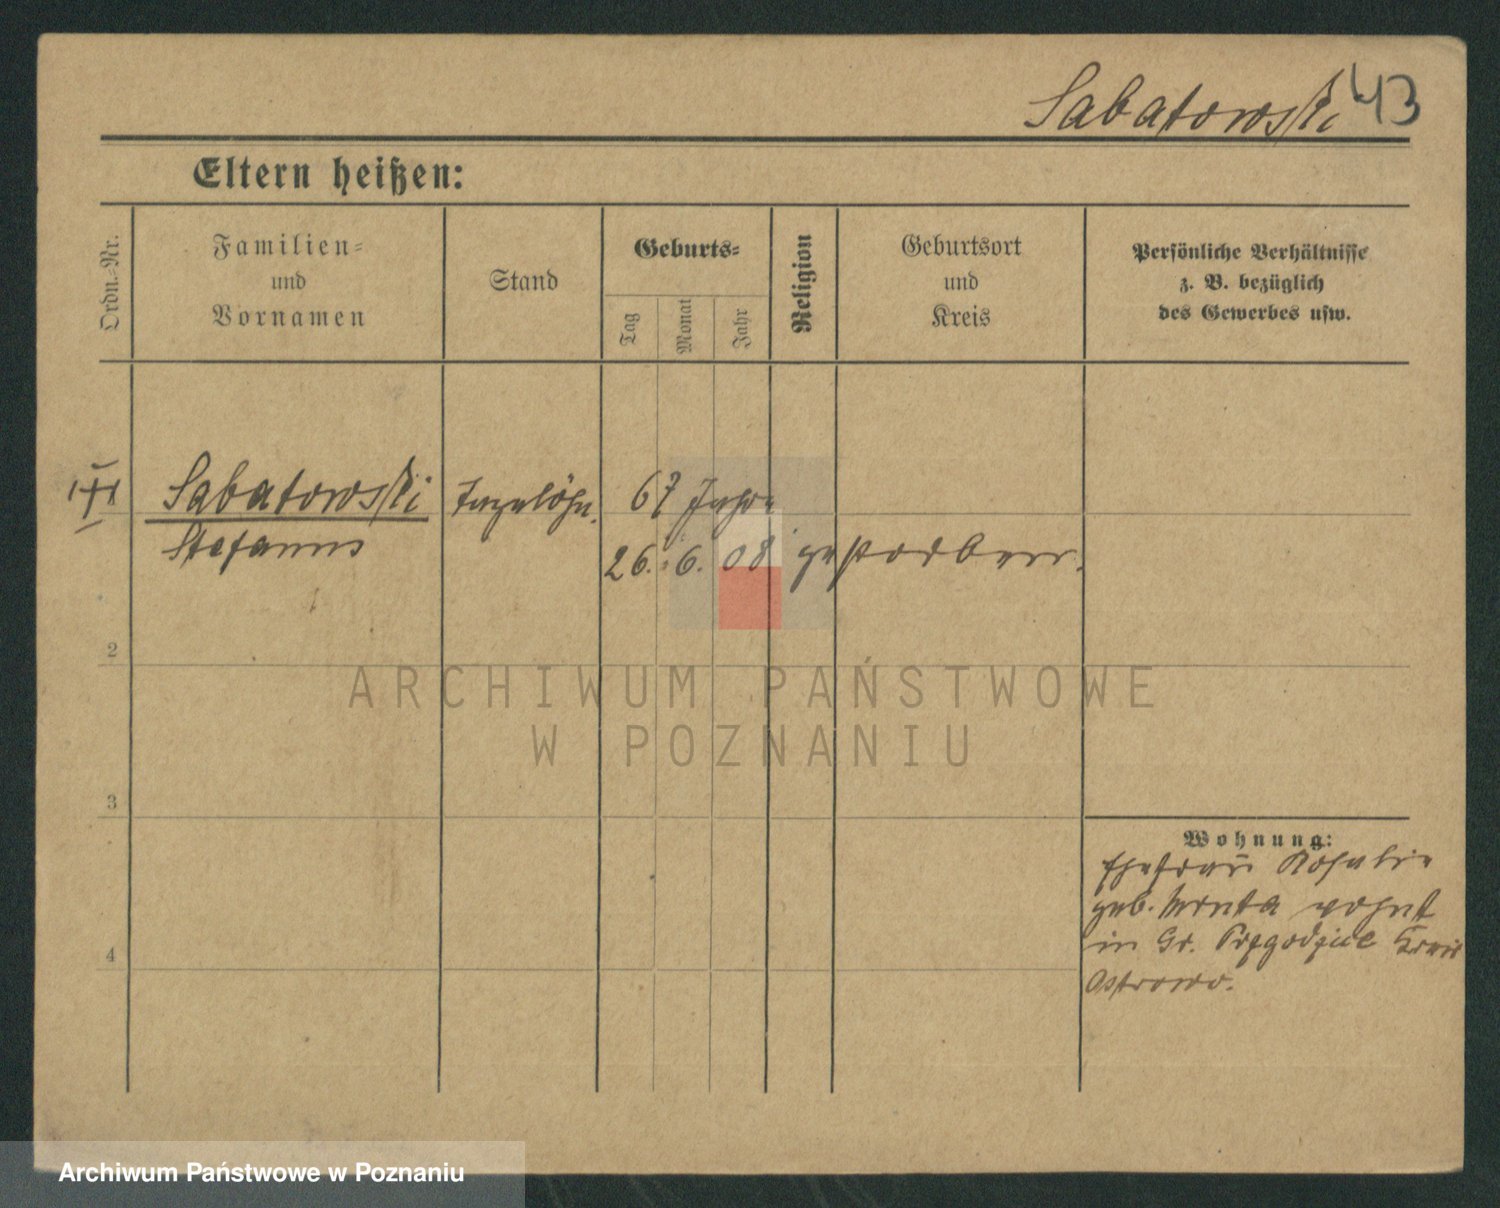 Sabatowski 43
Eltern heißen:
Ordn.-Nr.
Familien-
und
Vornamen
Stand
Geburts-
Tag
Monat
Jahr
Religion
Geburtsort
und
Kreis
Persönliche Verhältnisse
z. B. bezüglich
des Gewerbes usw.
Sabatowski Tagelöhn. 67 Jahre
Stefanus 26. 6. 08 gestorben.
2
ARCHIWUM PAŃSTWOWE
W POZNANIU
3
Wohnung:
Ehefrau Rosalie
geb. wohnt
in Gr. Przygodzice Kreis
4
Ostrowo.
Archiwum Państwowe w Poznaniu